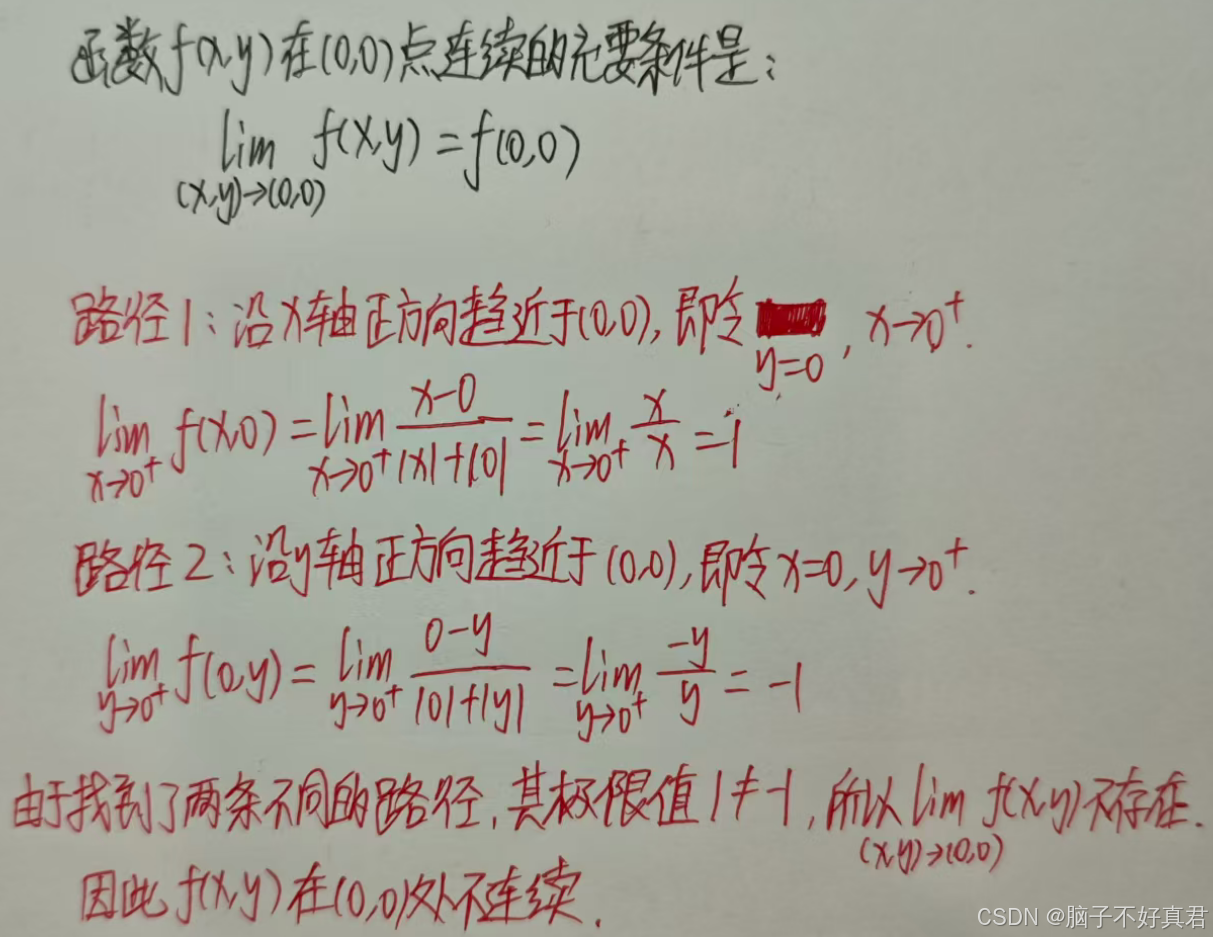 函数f(x,y)在(0,0)点连续的充要条件是:
lim f(x,y)=f(0,0)
(x,y)→(0,0)
路径1:沿x轴正方向趋近于(0,0),即令y=0,x→0⁺.
lim f(x,0)=lim (x-0)/(|x|+|0|)=lim x/x=1
x→0⁺ x→0⁺ x→0⁺
路径2:沿y轴正方向趋近于(0,0),即令x=0,y→0⁺.
lim f(0,y)=lim (0-y)/(|0|+|y|)=lim -y/y=-1
y→0⁺ y→0⁺ y→0⁺
由于找到了两条不同的路径,其极限值1≠-1,所以lim f(x,y)不存在.
(x,y)→(0,0)
因此f(x,y)在(0,0)处不连续.
CSDN @脑子不好真君